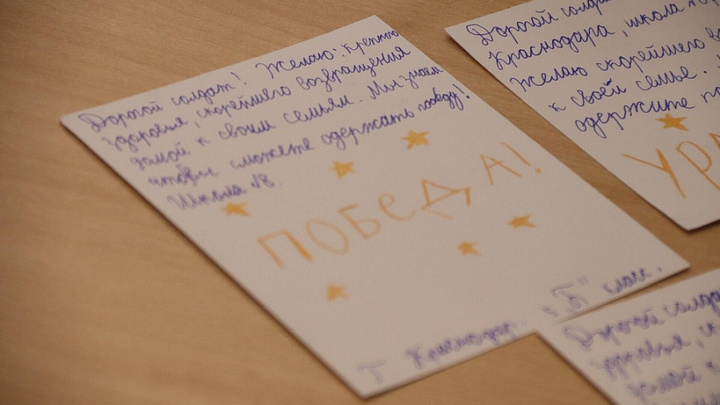 Дорогой солдат! Желаю: Крепкого
здоровья, скорейшего возвращения
домой к своим семьям. Мы знаем
чтобы сможете одержать победу!
Школа №8.
ПОБЕДА!
Г. Краснодар. "Б" класс.
Дорогой солда
Краснодара, школа
Желаю скорейшего во
к своей семье.
одержите по
УРА
Дорогой солда
здоровья, ск
домой к